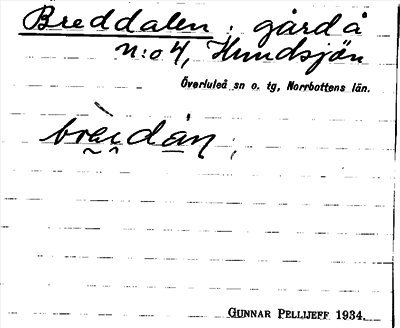 Breddalen : gård å
n:o 4, Hundsjön
Överluleå sn o. tg, Norrbottens län.
bræ̀i̯dån ;
GUNNAR PELLIJEFF 1934.